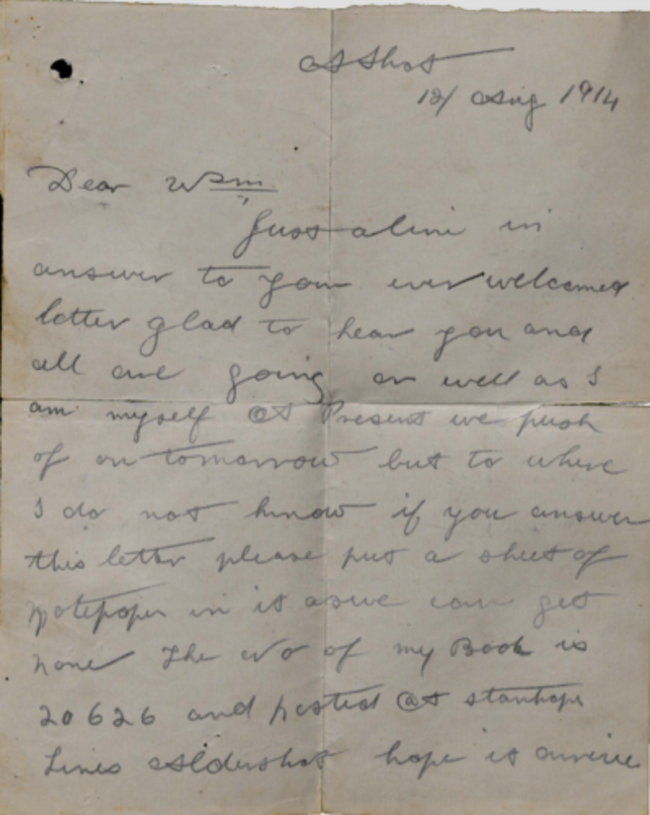 A Shot
12/ Aug 1914
Dear Wm
Just a line in
answer to your ever welcomed
letter glad to hear you and
all are going on well as I
am myself At Present we push
of on tomorrow but to where
I do not know if you answer
this letter please put a sheet of
notepaper in it as we can get
none The No of my Book is
20626 and posted At stanhope
Lines Aldershot hope it arrive